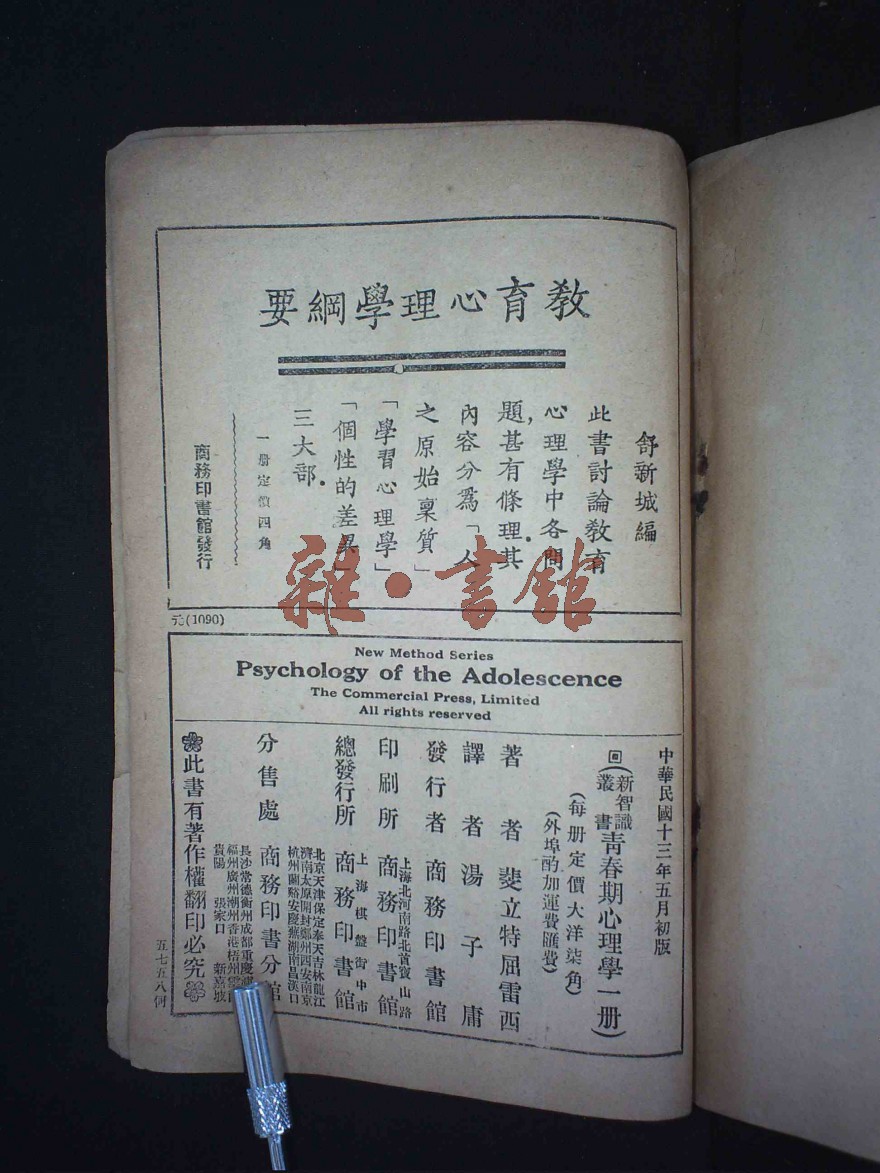 教育心理學綱要
舒新城編
此書討論教育
心理學中各問
題，甚有條理。其
內容分爲「人
之原始稟質」
「學習心理學」
「個性的差異」
三大部．
一册定價四角
商務印書館發行
雜·書館
元(1090)
New Method Series
Psychology of the Adolescence
The Commercial Press, Limited
All rights reserved
中華民國十三年五月初版
回(新智識叢書青春期心理學一册)
(每册定價大洋柒角)
(外埠酌加運費匯費)
著者 斐立特屈雷西
譯者 湯子庸
發行者 商務印書館
上海北河南路北首寶山路
印刷所 商務印書館
上海棋盤街中市
總發行所 商務印書館
北京天津保定奉天吉林龍江
濟南太原開封鄭州西安南京
杭州蘭谿安慶蕪湖南昌漢口
分售處 商務印書分館
長沙常德衡州成都重慶
福州廣州潮州香港梧州雲南
貴陽 張家口 新嘉坡
此書有著作權翻印必究
五七五八何